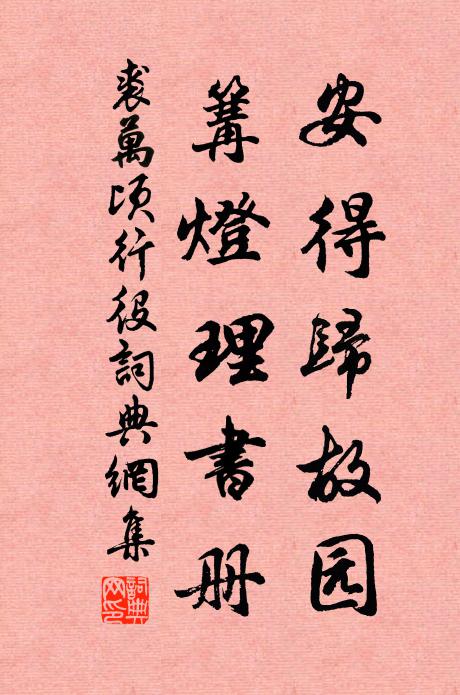 安得歸故园
篝燈理書册
裘萬顷行役詞典網集
詞典网印